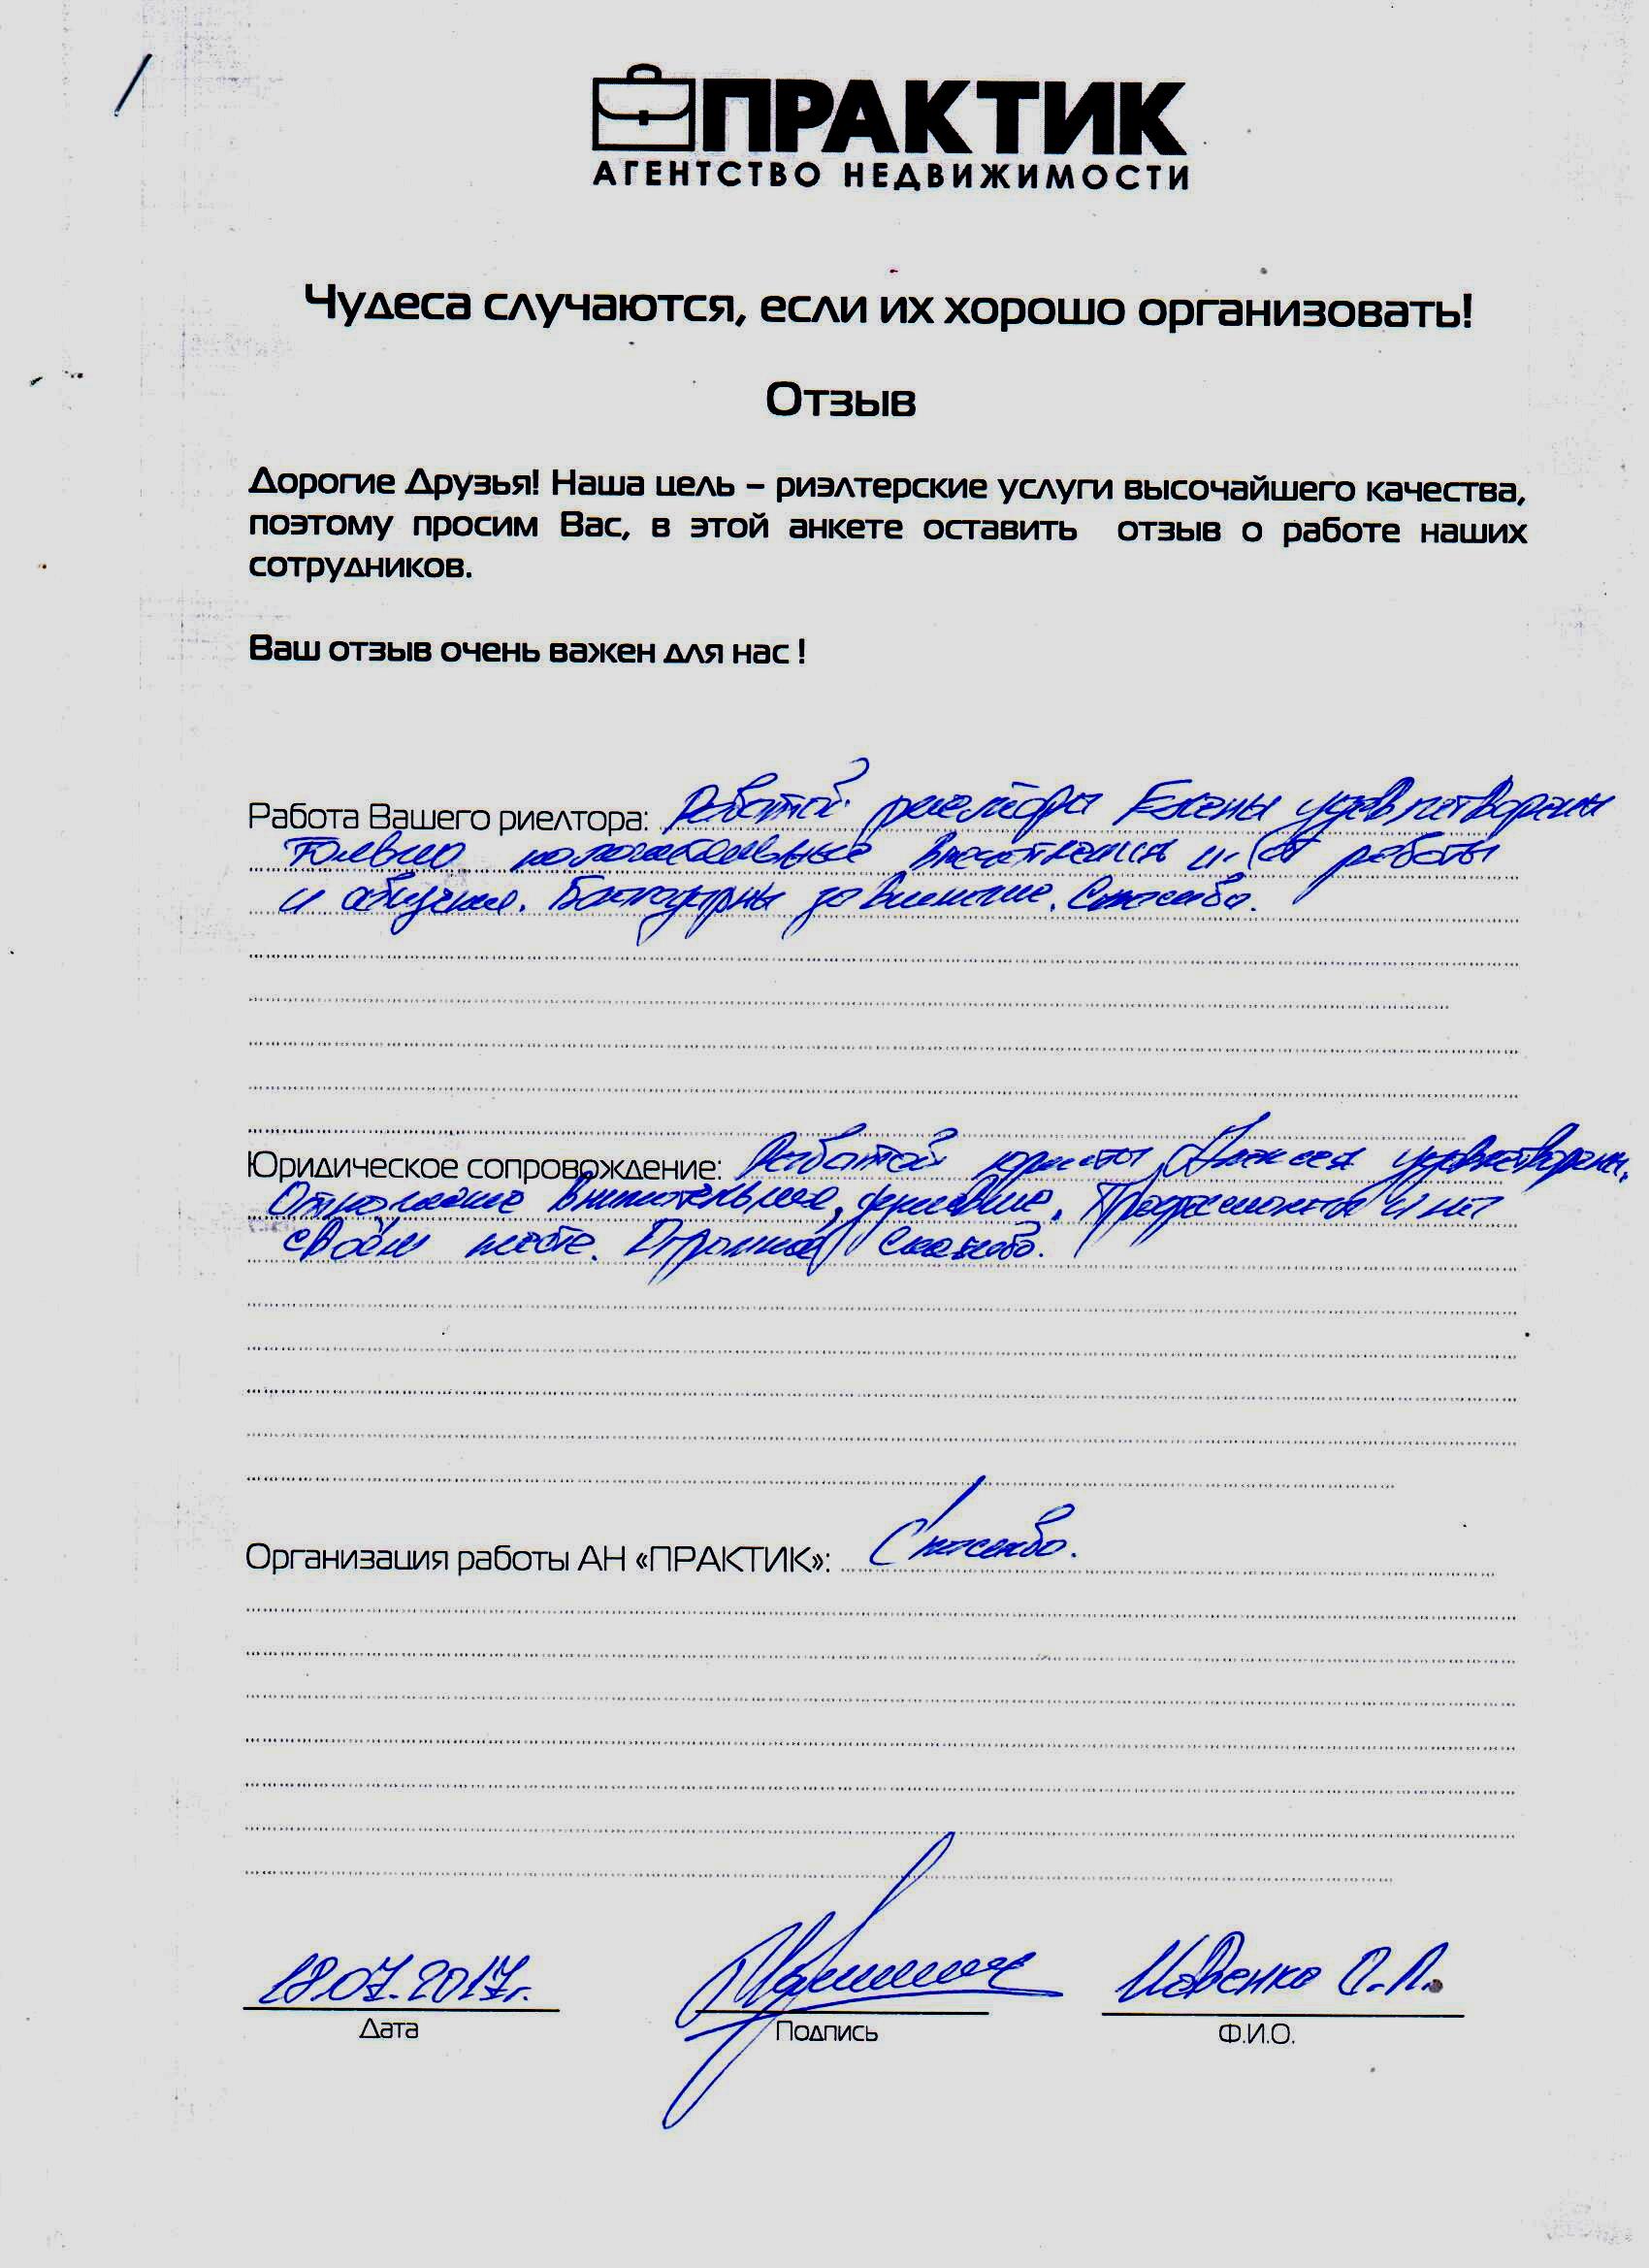 ПРАКТИК
АГЕНТСТВО НЕДВИЖИМОСТИ
Чудеса случаются, если их хорошо организовать!
Отзыв
Дорогие Друзья! Наша цель – риэлтерские услуги высочайшего качества,
поэтому просим Вас, в этой анкете оставить отзыв о работе наших
сотрудников.
Ваш отзыв очень важен для нас !
Работа Вашего риелтора: Работой риелтора Елены удовлетворены
Только положительные впечатления от работы
и общения. Благодарны за внимание. Спасибо.
Юридическое сопровождение: Работой юриста Алексея удовлетворены.
Отношение внимательное, душевное. Профессионал и на
своём месте. Огромное спасибо.
Организация работы АН «ПРАКТИК»: Спасибо.
18.07.2017г.
Дата
Подпись
Ф.И.О.